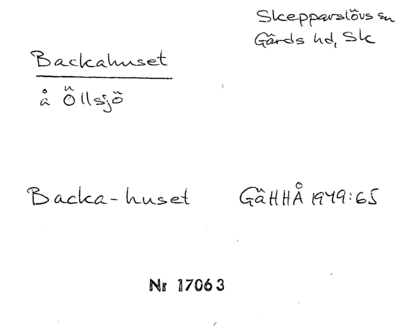 Skepparslövs sn
Gärds hd, Sk
Backahuset
å Öllsjö
Backa-huset GäHHÅ 1949:65
Nr 17063